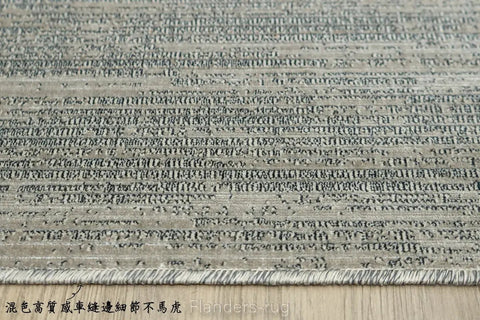 混色高質感車縫邊細節不馬虎
Flanders-rug